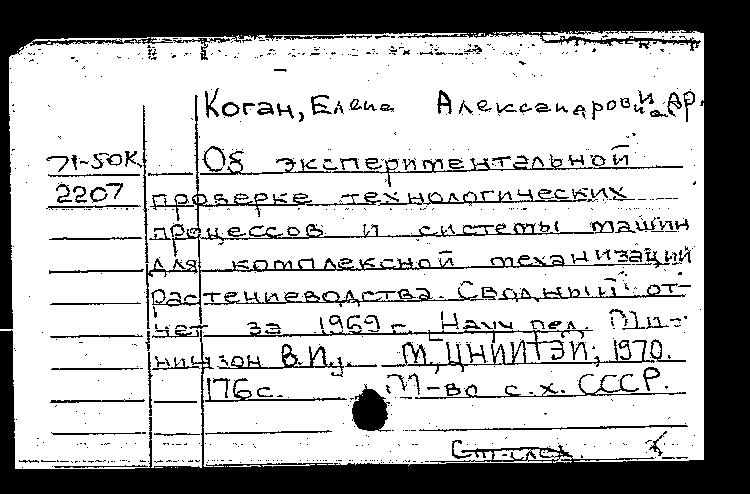 Коган, Елена Александровна и др.
71-50К Об экспериментальной
2207 проверке технологических
процессов и системы машин
для комплексной механизации
растениеводства. Сводный от-
чет за 1969 г. Науч. ред.
В. И. М, ЦНИИТЭИ, 1970.
176 с. М-во с. х. СССР.